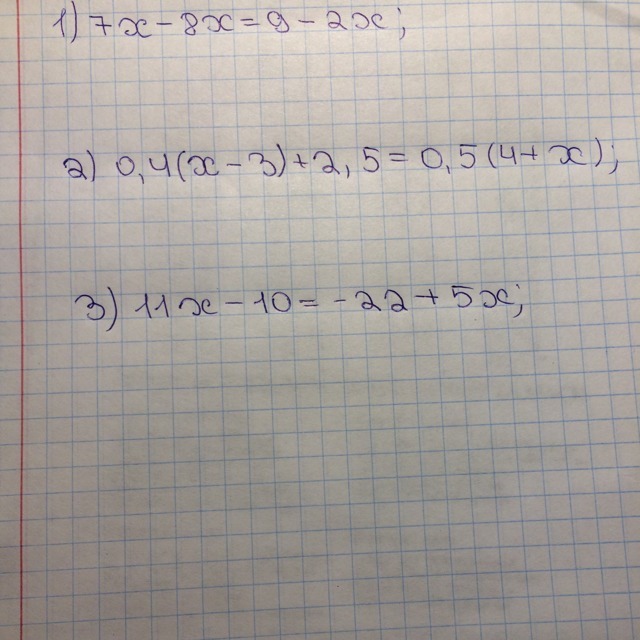 1) 7x - 8x = 9 - 2x;
2) 0,4(x - 3) + 2,5 = 0,5(4 + x);
3) 11x - 10 = -22 + 5x;